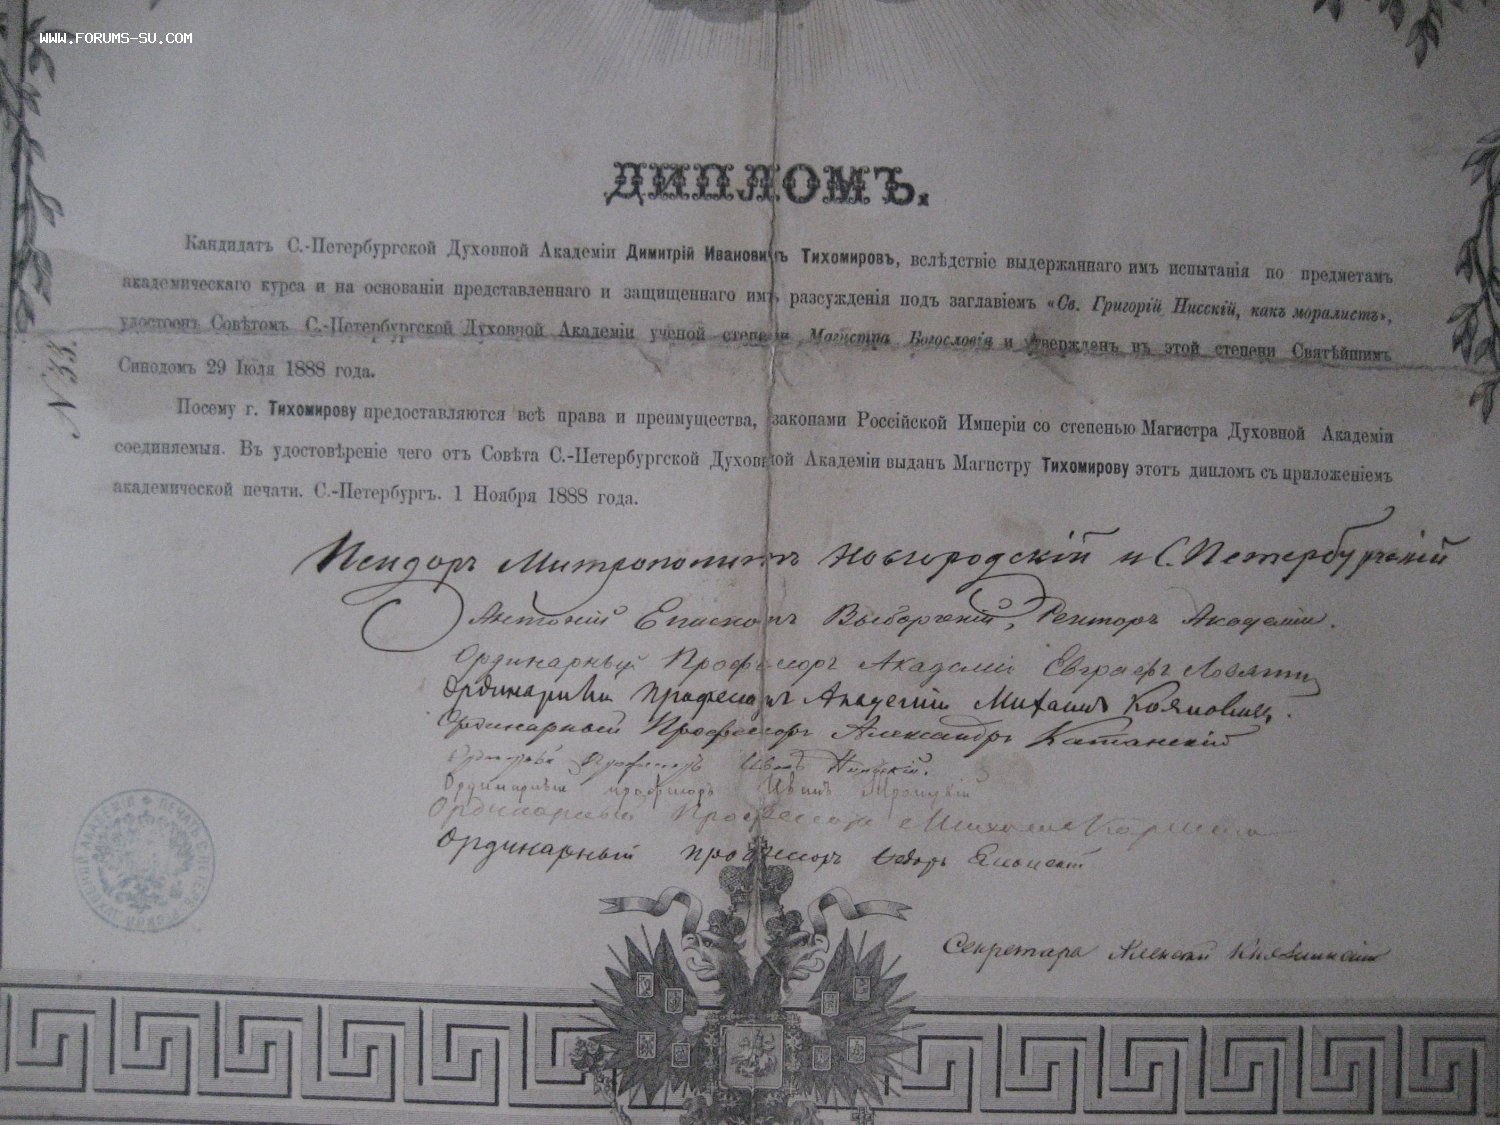 WWW.FORUMS-SU.COM
ДИПЛОМЪ.
Кандидатъ С.-Петербургской Духовной Академіи Димитрій Ивановичъ Тихомировъ, вслѣдствіе выдержаннаго имъ испытанія по предметамъ
академическаго курса и на основаніи представленнаго и защищеннаго имъ разсужденія подъ заглавіемъ «Св. Григорій Нисскій, какъ моралистъ»,
удостоенъ Совѣтомъ С.-Петербургской Духовной Академіи ученой степени Магистра Богословія и утвержденъ въ этой степени Святѣйшимъ
Синодомъ 29 Іюля 1888 года.
Посему г. Тихомирову предоставляются всѣ права и преимущества, законами Россійской Имперіи со степенью Магистра Духовной Академіи
соединяемыя. Въ удостовѣреніе чего отъ Совѣта С.-Петербургской Духовной Академіи выданъ Магистру Тихомирову этотъ дипломъ съ приложеніемъ
академической печати. С.-Петербургъ. 1 Ноября 1888 года.
Исидоръ Митрополитъ Новгородскій и С. Петербургскій
Антоній Епископъ Выборгскій, Ректоръ Академіи.
Ординарный Профессоръ Академіи Евграфъ Ловягин
Ординарный профессоръ Академіи Михаилъ Кояловичъ.
Ординарный Профессоръ Александръ Катанскій
Профессоръ Иванъ Нильскій.
Ординарный профессоръ Иванъ Троицкій
Ординарный Профессоръ Михаилъ
Ординарный профессоръ Ѳедоръ Елеонскій
Секретарь Алексѣй
№ 33.